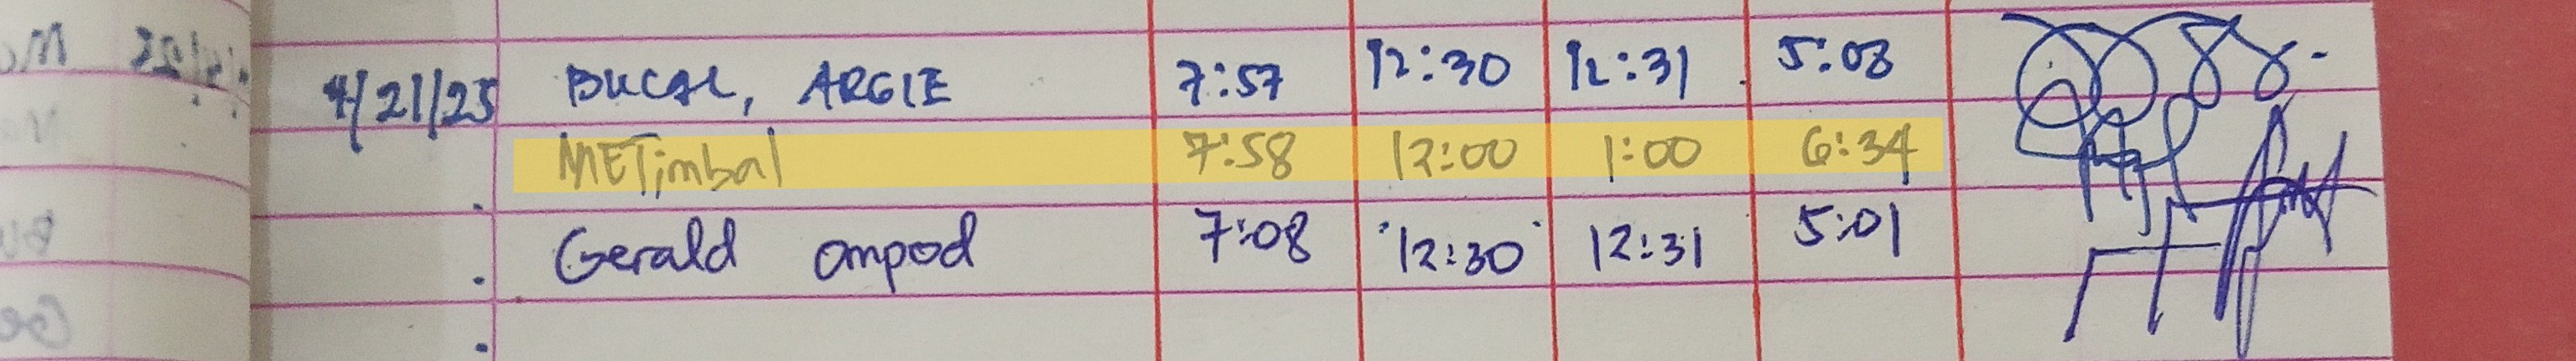 4/21/25 BUCAL, ARGIE 7:57 12:30 12:31 5:03
METimbal 7:58 12:00 1:00 6:34
Gerald ompod 7:08 12:30 12:31 5:01